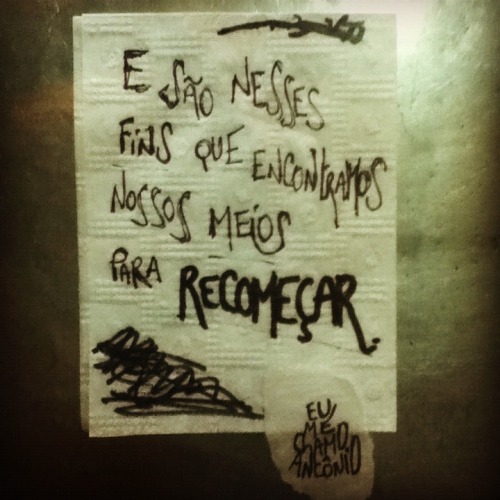 E SÃO NESSES
FINS QUE ENCONTRAMOS
NOSSOS MEIOS
PARA RECOMEÇAR.
EU
ME
CHAMO
ANTÔNIO